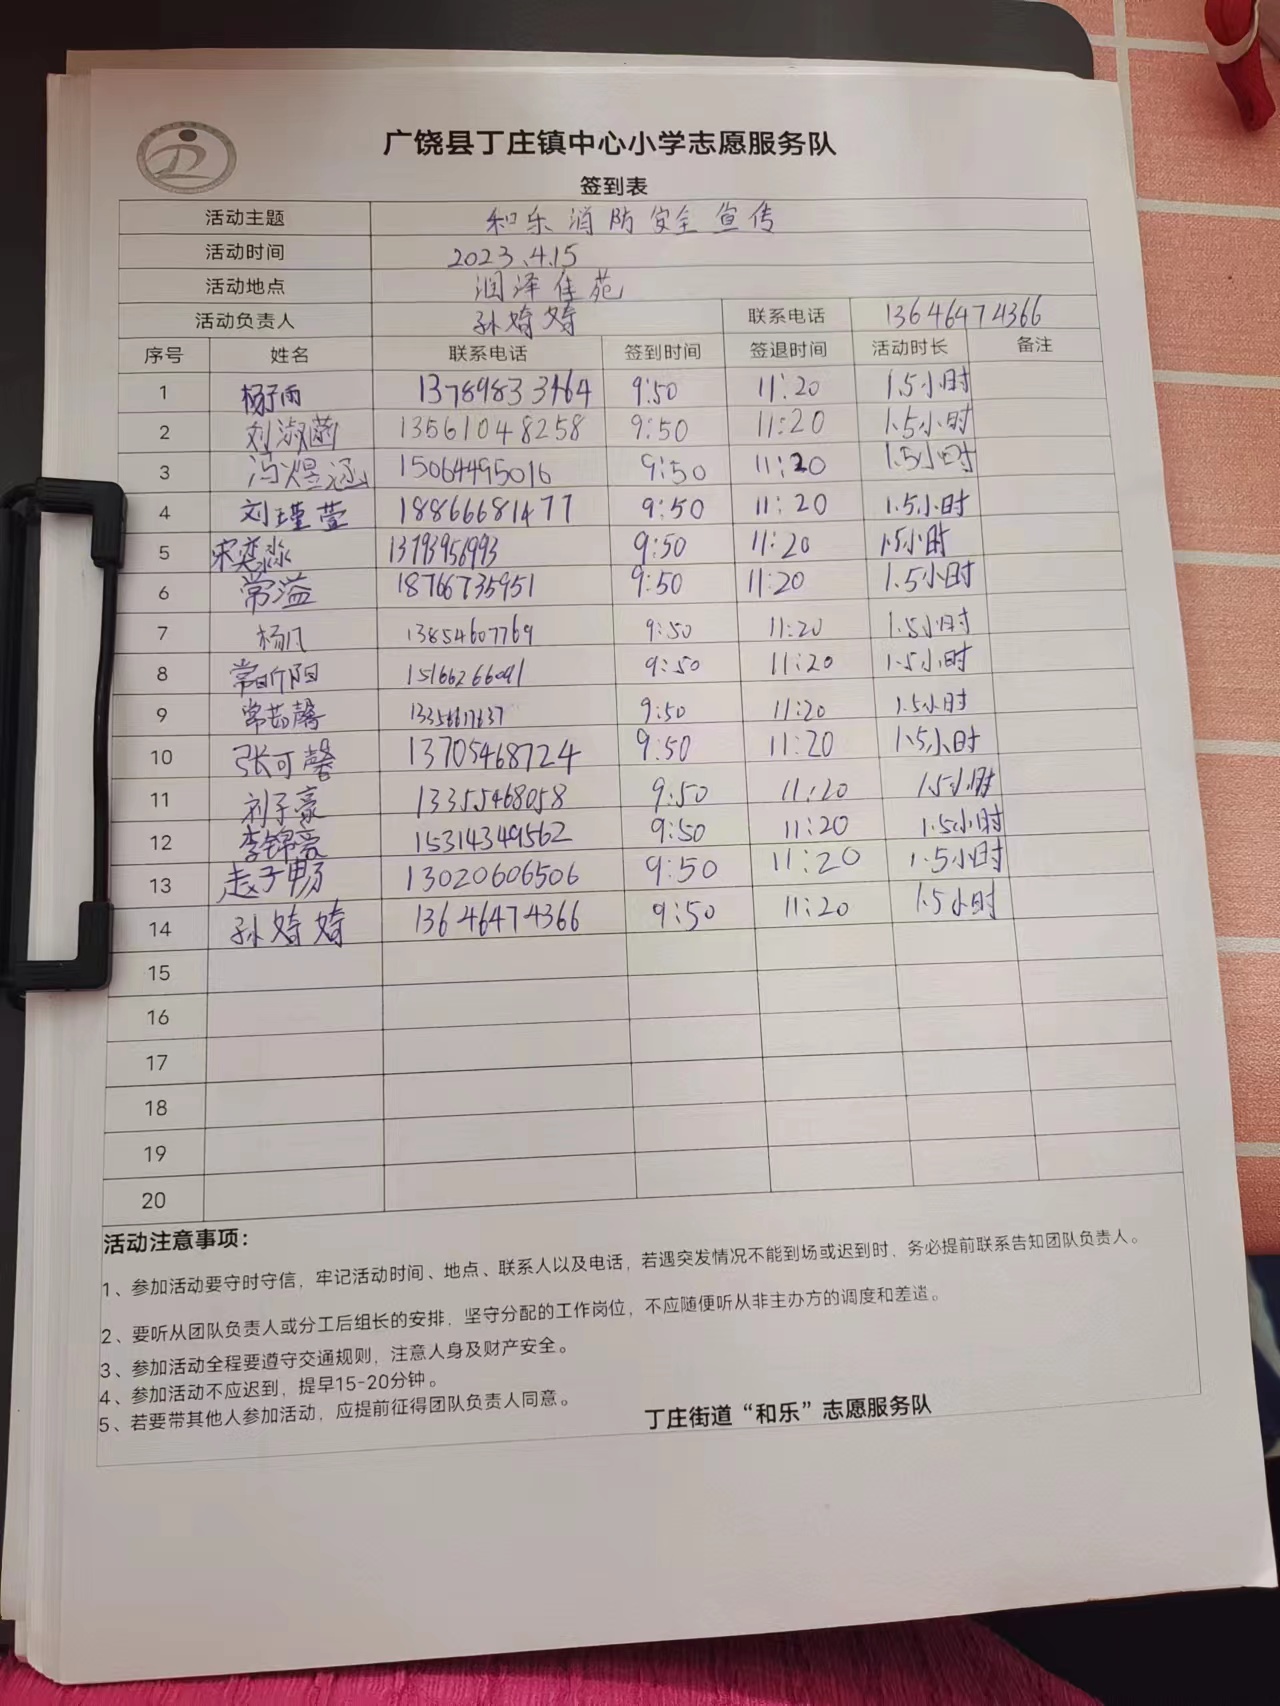 广饶县丁庄镇中心小学志愿服务队
签到表
活动主题 和乐消防安全宣传
活动时间 2023.4.15
活动地点 润泽佳苑
活动负责人 孙婍婍 联系电话 13646474366
序号 姓名 联系电话 签到时间 签退时间 活动时长 备注
1 杨子雨 13789833464 9:50 11:20 1.5小时
2 刘淑菡 13561048258 9:50 11:20 1.5小时
3 冯煜涵 15064495016 9:50 11:20 1.5小时
4 刘瑾萱 18866681477 9:50 11:20 1.5小时
5 宋奕淼 13793956993 9:50 11:20 1.5小时
6 常溢 18766735951 9:50 11:20 1.5小时
7 杨凡 13854607769 9:50 11:20 1.5小时
8 常昕阳 15166266091 9:50 11:20 1.5小时
9 常茹馨 9:50 11:20 1.5小时
10 张可馨 13705468724 9:50 11:20 1.5小时
11 刘子豪 13355468058 9:50 11:20 1.5小时
12 李锦亮 15314349562 9:50 11:20 1.5小时
13 赵子畅 13020606506 9:50 11:20 1.5小时
14 孙婍婍 13646474366 9:50 11:20 1.5小时
15
16
17
18
19
20
活动注意事项：
1、参加活动要守时守信，牢记活动时间、地点、联系人以及电话，若遇突发情况不能到场或迟到时，务必提前联系告知团队负责人。
2、要听从团队负责人或分工后组长的安排，坚守分配的工作岗位，不应随便听从非主办方的调度和差遣。
3、参加活动全程要遵守交通规则，注意人身及财产安全。
4、参加活动不应迟到，提早15-20分钟。
5、若要带其他人参加活动，应提前征得团队负责人同意。
丁庄街道“和乐”志愿服务队